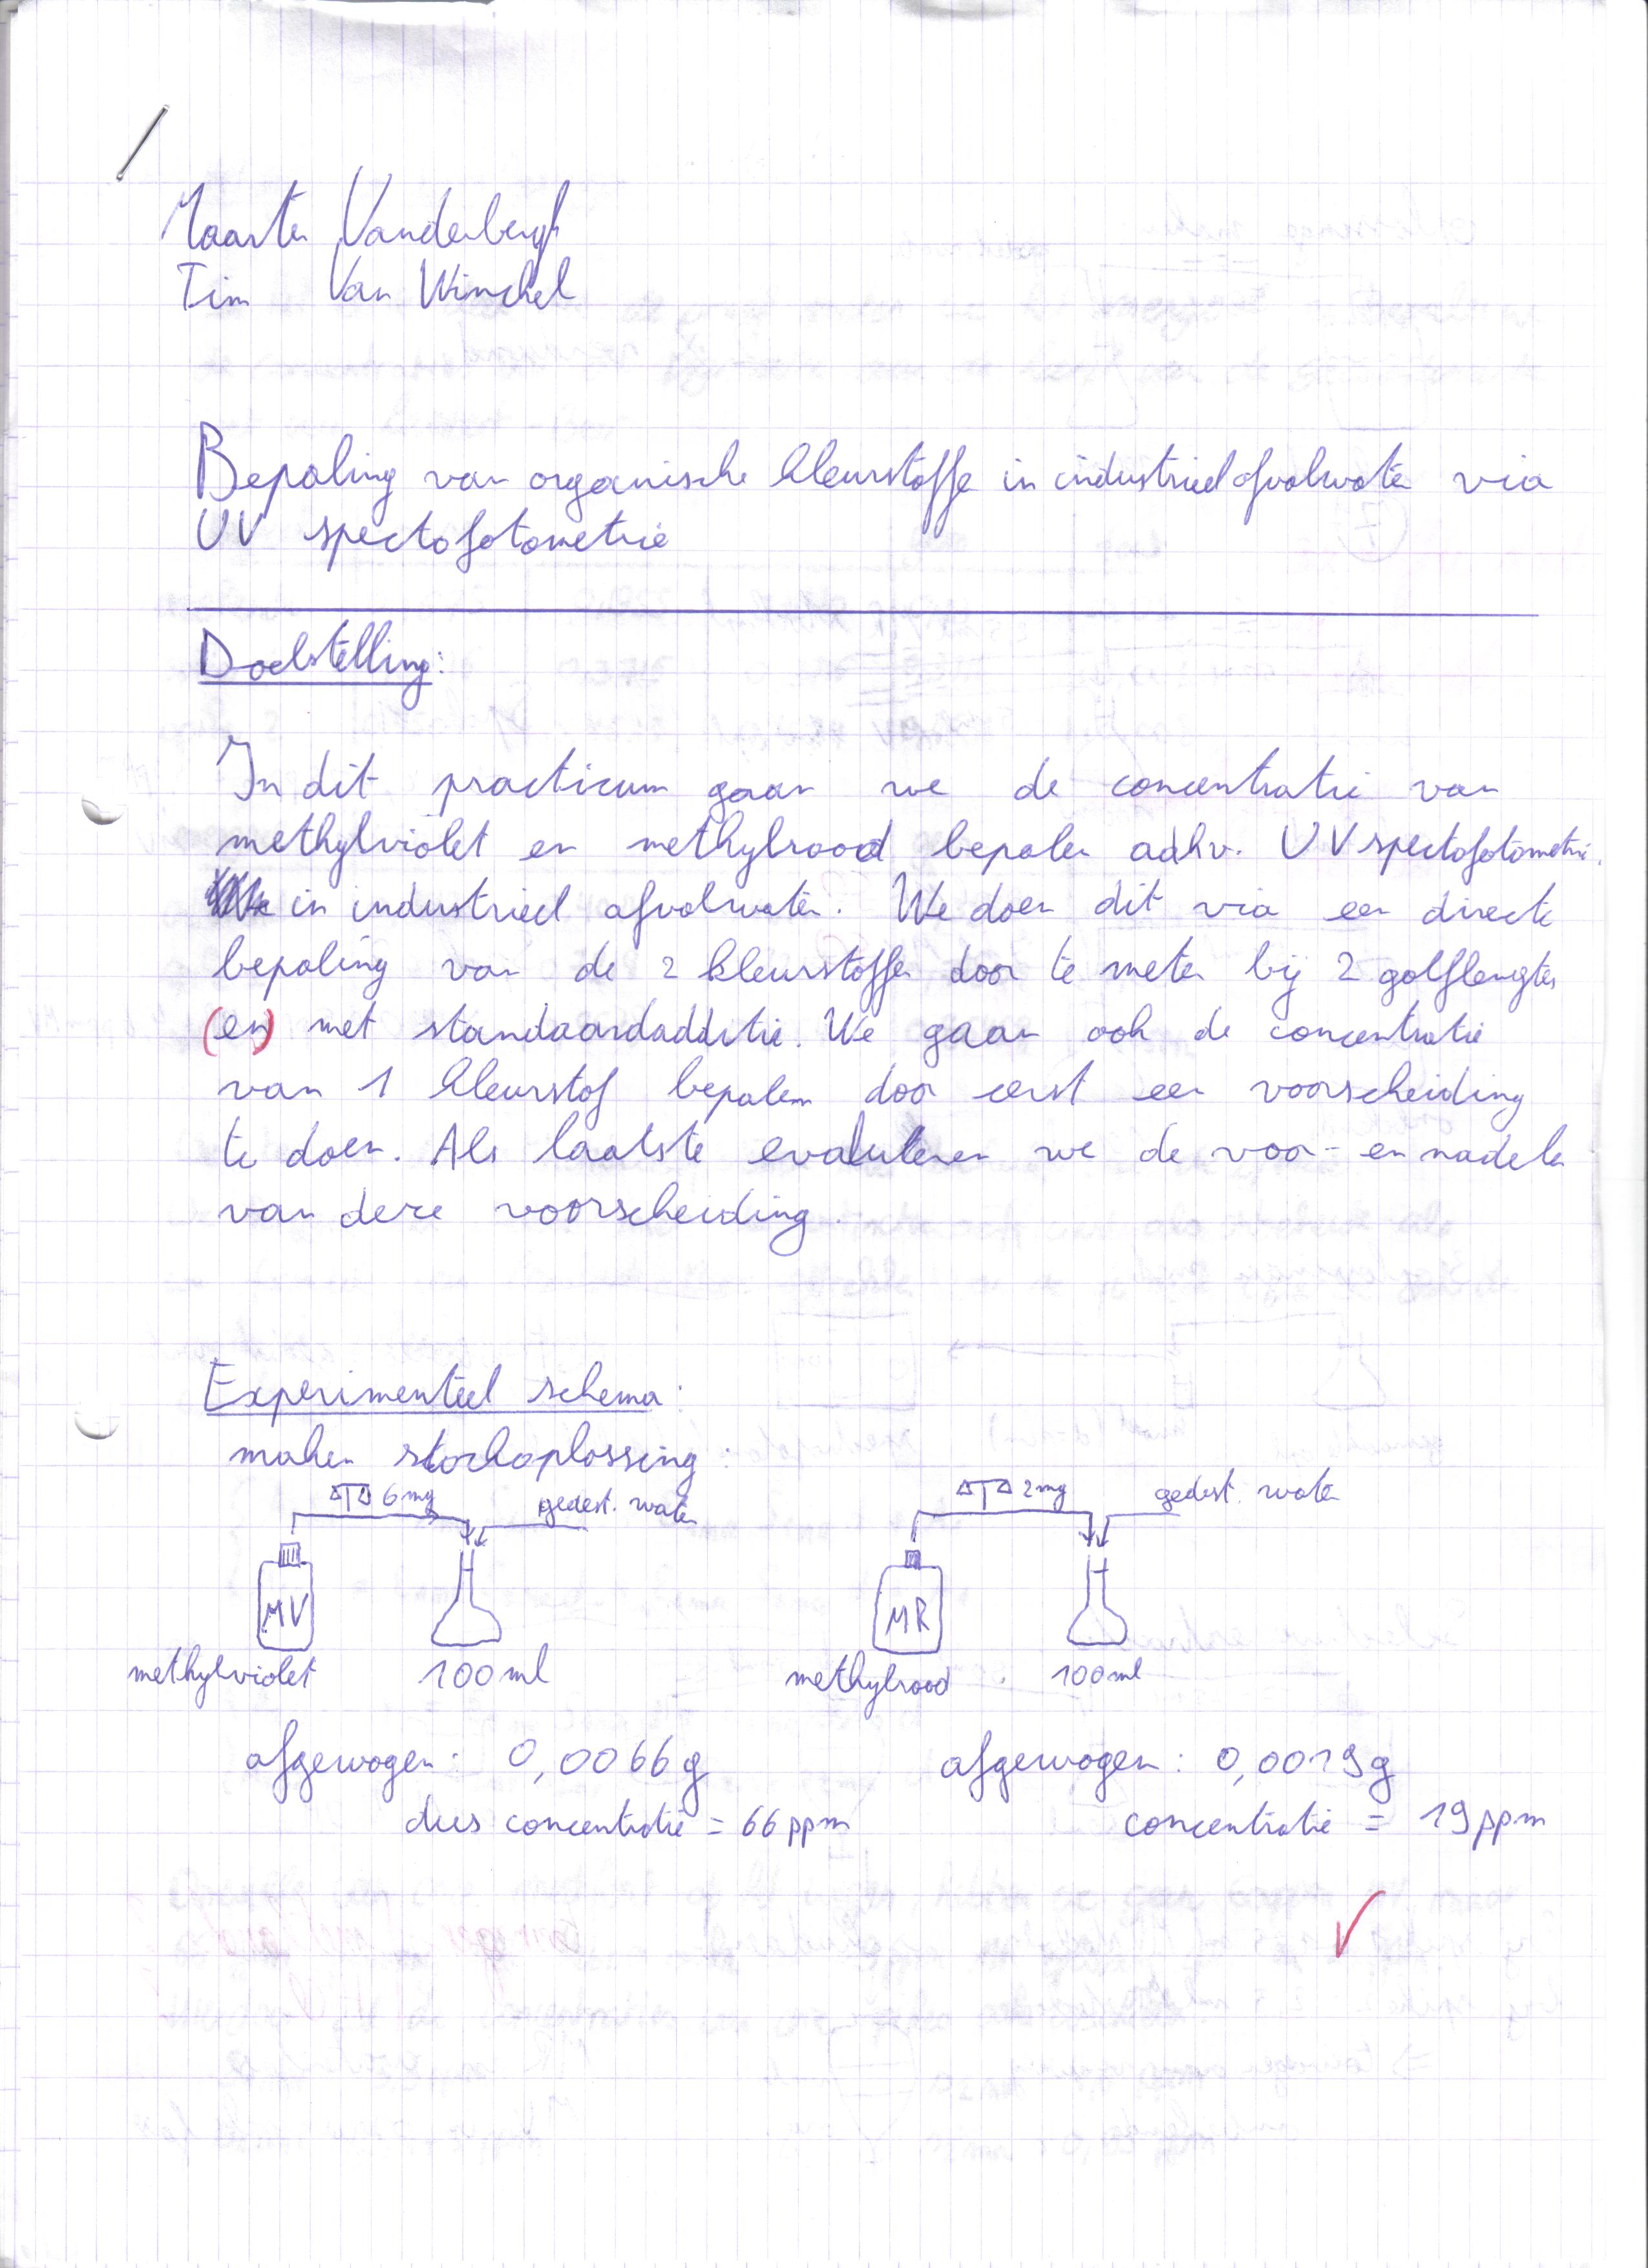 Maarten Vanderbergh
Tim Van Winckel
Bepaling van organische kleurstoffe in industrieel afvalwater via
UV spectofotometrie
Doelstelling:
In dit practicum gaan we de concentratie van
methylviolet en methylrood bepalen adhv. UV spectofotometrie.
in industrieel afvalwater. We doen dit via een directe
bepaling van de 2 kleurstoffen door te meten bij 2 golflengtes
(en) met standaardadditie. We gaan ook de concentratie
van 1 kleurstof bepalen door eerst een voorscheiding
te doen. Als laatste evalueren we de voor- en nadelen
van deze voorscheiding.
Experimenteel schema:
maken stockoplossing:
6mg gedest. water 2mg gedest. water
MV MR
methylviolet 100ml methylrood 100ml
afgewogen: 0,0066g afgewogen: 0,0019g
dus concentratie = 66 ppm concentratie = 19 ppm